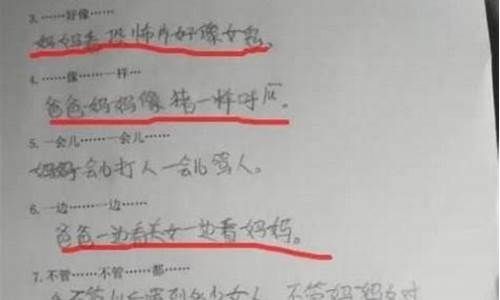 3.……好像……
妈妈看恐怖片好像女鬼。
4.……像……一样…
爸爸妈妈像猪一样呼
5.一会儿……一会儿……
妈妈会儿打人一会儿骂人。
6.一边……一边……
爸爸一边看美女一边看妈妈。
7.不管……不管……都……
不管